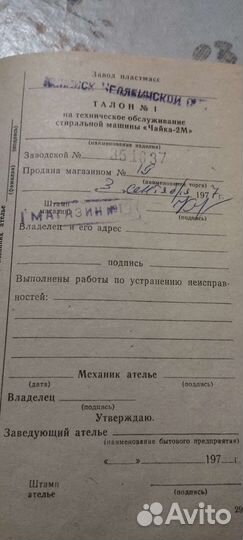 Завод пластмасс
КОПЕЙСК ЧЕЛЯБИНСКОЙ ОБ
ТАЛОН № 1
на техническое обслуживание
стиральной машины «Чайка-2М»
(наименование изделия)
Заводской №
Продана магазином № 19
(наименование торга)
3 сентября 1977 г.
Штамп
магазина
(подпись)
МАГАЗИН №
Владелец и его адрес
подпись
Выполнены работы по устранению неисправ-
ностей:
Механик ателье
(дата) (подпись)
Владелец
(подпись)
Утверждаю.
Заведующий ателье
(наименование бытового предприятия)
«__» 197 г.
Штамп
ателье
(подпись)
29
Механик ателье
(фамилия)
(подпись)
Avito